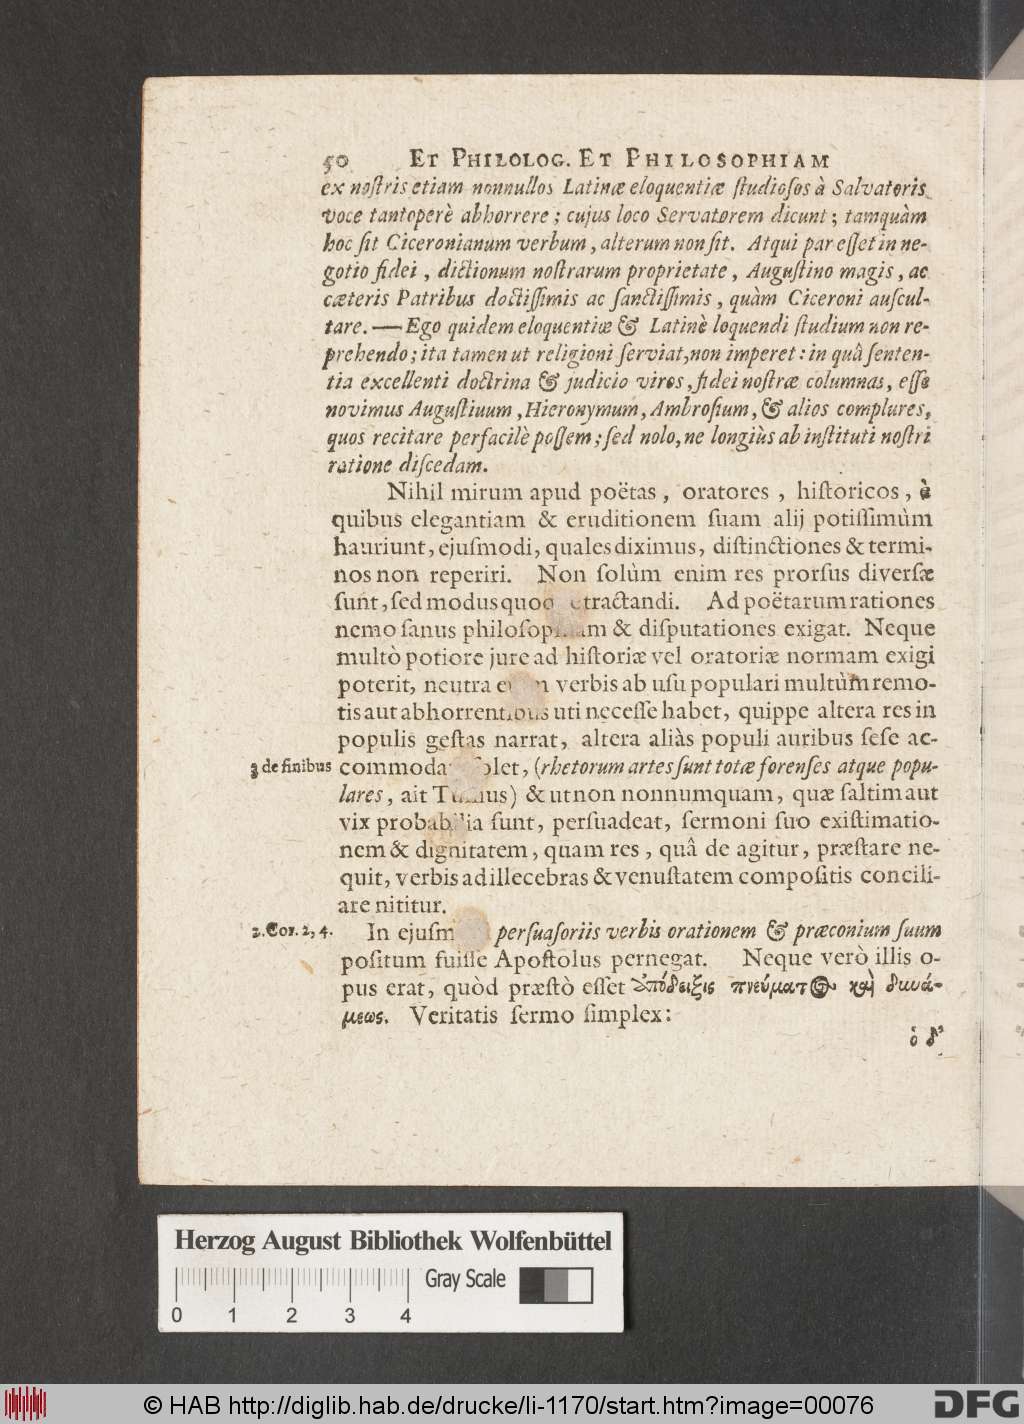 50 ET PHILOLOG. ET PHILOSOPHIAM
ex noſtris etiam nonnullos Latinæ eloquentiæ ſtudioſos à Salvatoris
voce tantoperè abhorrere; cujus loco Servatorem dicunt; tamquàm
hoc ſit Ciceronianum verbum, alterum non ſit. Atqui par eſſet in ne-
gotio fidei, dictionum noſtrarum proprietate, Auguſtino magis, ac
cæteris Patribus doctiſſimis ac ſanctiſſimis, quàm Ciceroni auſcul-
tare. — Ego quidem eloquentiæ & Latinè loquendi ſtudium non re-
prehendo; ita tamen ut religioni ſerviat, non imperet: in quâ ſenten-
tia excellenti doctrina & judicio viros, fidei noſtræ columnas, eſſe
novimus Auguſtiuum, Hieronymum, Ambroſium, & alios complures,
quos recitare perfacilè poſſem; ſed nolo, ne longiùs ab inſtituti noſtri
ratione diſcedam.
Nihil mirum apud poëtas, oratores, hiſtoricos, è
quibus elegantiam & eruditionem ſuam alij potiſſimùm
hauriunt, ejuſmodi, quales diximus, diſtinctiones & termi-
nos non reperiri. Non ſolùm enim res prorſus diverſæ
ſunt, ſed modus quoq tractandi. Ad poëtarum rationes
nemo ſanus philoſophiam & diſputationes exigat. Neque
multò potiore jure ad hiſtoriæ vel oratoriæ normam exigi
poterit, neutra verbis ab uſu populari multùm remo-
tis aut abhorrentibus uti neceſſe habet, quippe altera res in
populis geſtas narrat, altera aliàs populi auribus ſeſe ac-
3 de finibus commodare ſolet, (rhetorum artes ſunt totæ forenſes atque popu-
lares, ait Tullius) & ut non nonnumquam, quæ ſaltim aut
vix probabilia ſunt, perſuadeat, ſermoni ſuo exiſtimatio-
nem & dignitatem, quam res, quâ de agitur, præſtare ne-
quit, verbis ad illecebras & venuſtatem compoſitis concili-
are nititur.
2. Cor. 2, 4. In ejuſmodi perſuaſoriis verbis orationem & præconium ſuum
poſitum fuiſſe Apoſtolus pernegat. Neque verò illis o-
pus erat, quòd præſtò eſſet ἀπόδειξις πνεύματος καὶ δυνά-
μεως. Veritatis ſermo ſimplex:
ὁ δ'
Herzog August Bibliothek Wolfenbüttel
Gray Scale
0 1 2 3 4
© HAB http://diglib.hab.de/drucke/li-1170/start.htm?image=00076
DFG